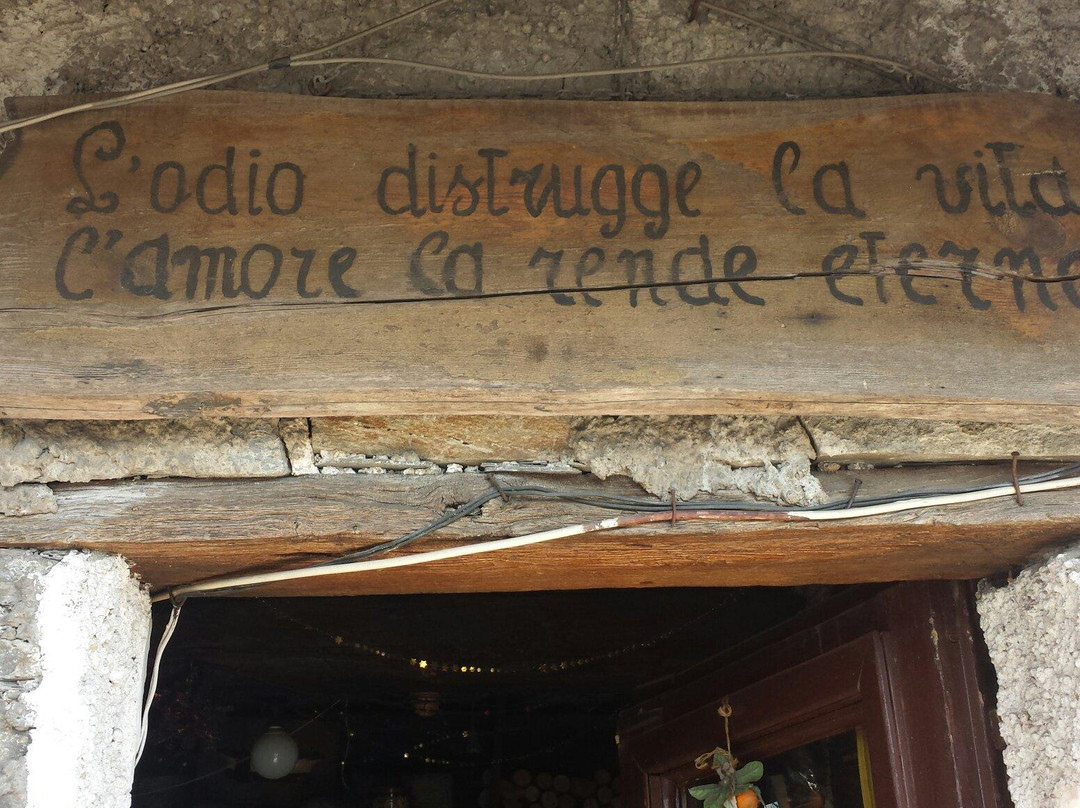 L'odio distrugge la vita
L'amore la rende eterna